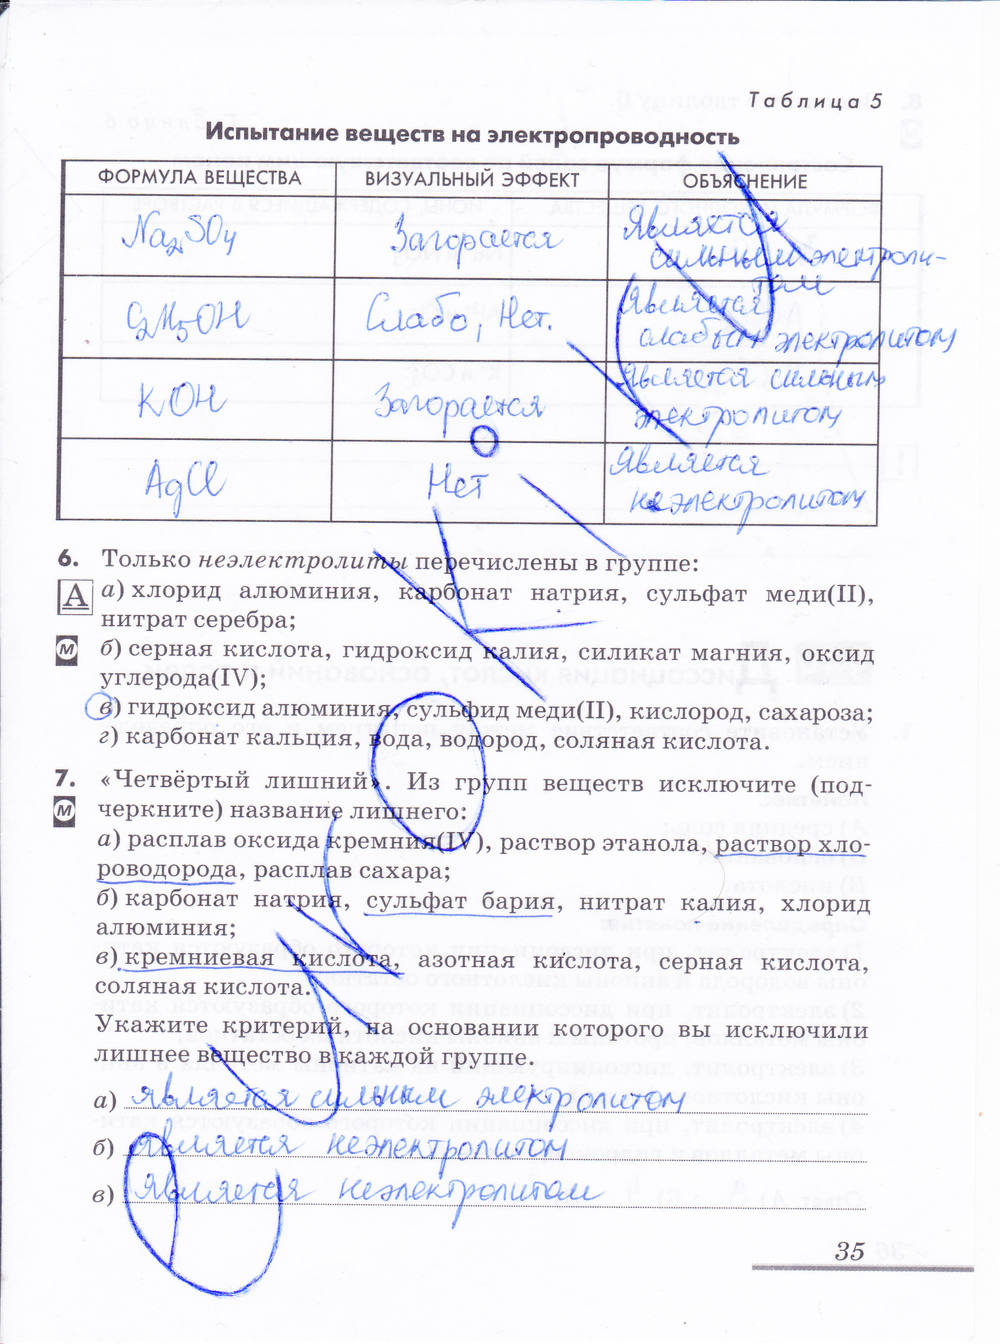 Таблица 5
Испытание веществ на электропроводность
ФОРМУЛА ВЕЩЕСТВА ВИЗУАЛЬНЫЙ ЭФФЕКТ ОБЪЯСНЕНИЕ
Na2SO4 Загорается Является
сильным электроли-
том
C2H5OH Слабо, Нет. Является
слабым электролитом
KOH Загорается Является сильным
электролитом
AgCl Нет Является
неэлектролитом
6. Только неэлектролиты перечислены в группе:
А а) хлорид алюминия, карбонат натрия, сульфат меди(II),
нитрат серебра;
М б) серная кислота, гидроксид калия, силикат магния, оксид
углерода(IV);
в) гидроксид алюминия, сульфид меди(II), кислород, сахароза;
г) карбонат кальция, вода, водород, соляная кислота.
7. «Четвёртый лишний». Из групп веществ исключите (под-
М черкните) название лишнего:
а) расплав оксида кремния(IV), раствор этанола, раствор хло-
роводорода, расплав сахара;
б) карбонат натрия, сульфат бария, нитрат калия, хлорид
алюминия;
в) кремниевая кислота, азотная кислота, серная кислота,
соляная кислота.
Укажите критерий, на основании которого вы исключили
лишнее вещество в каждой группе.
а) является сильным электролитом
б) является неэлектролитом
в) является неэлектролитом
35